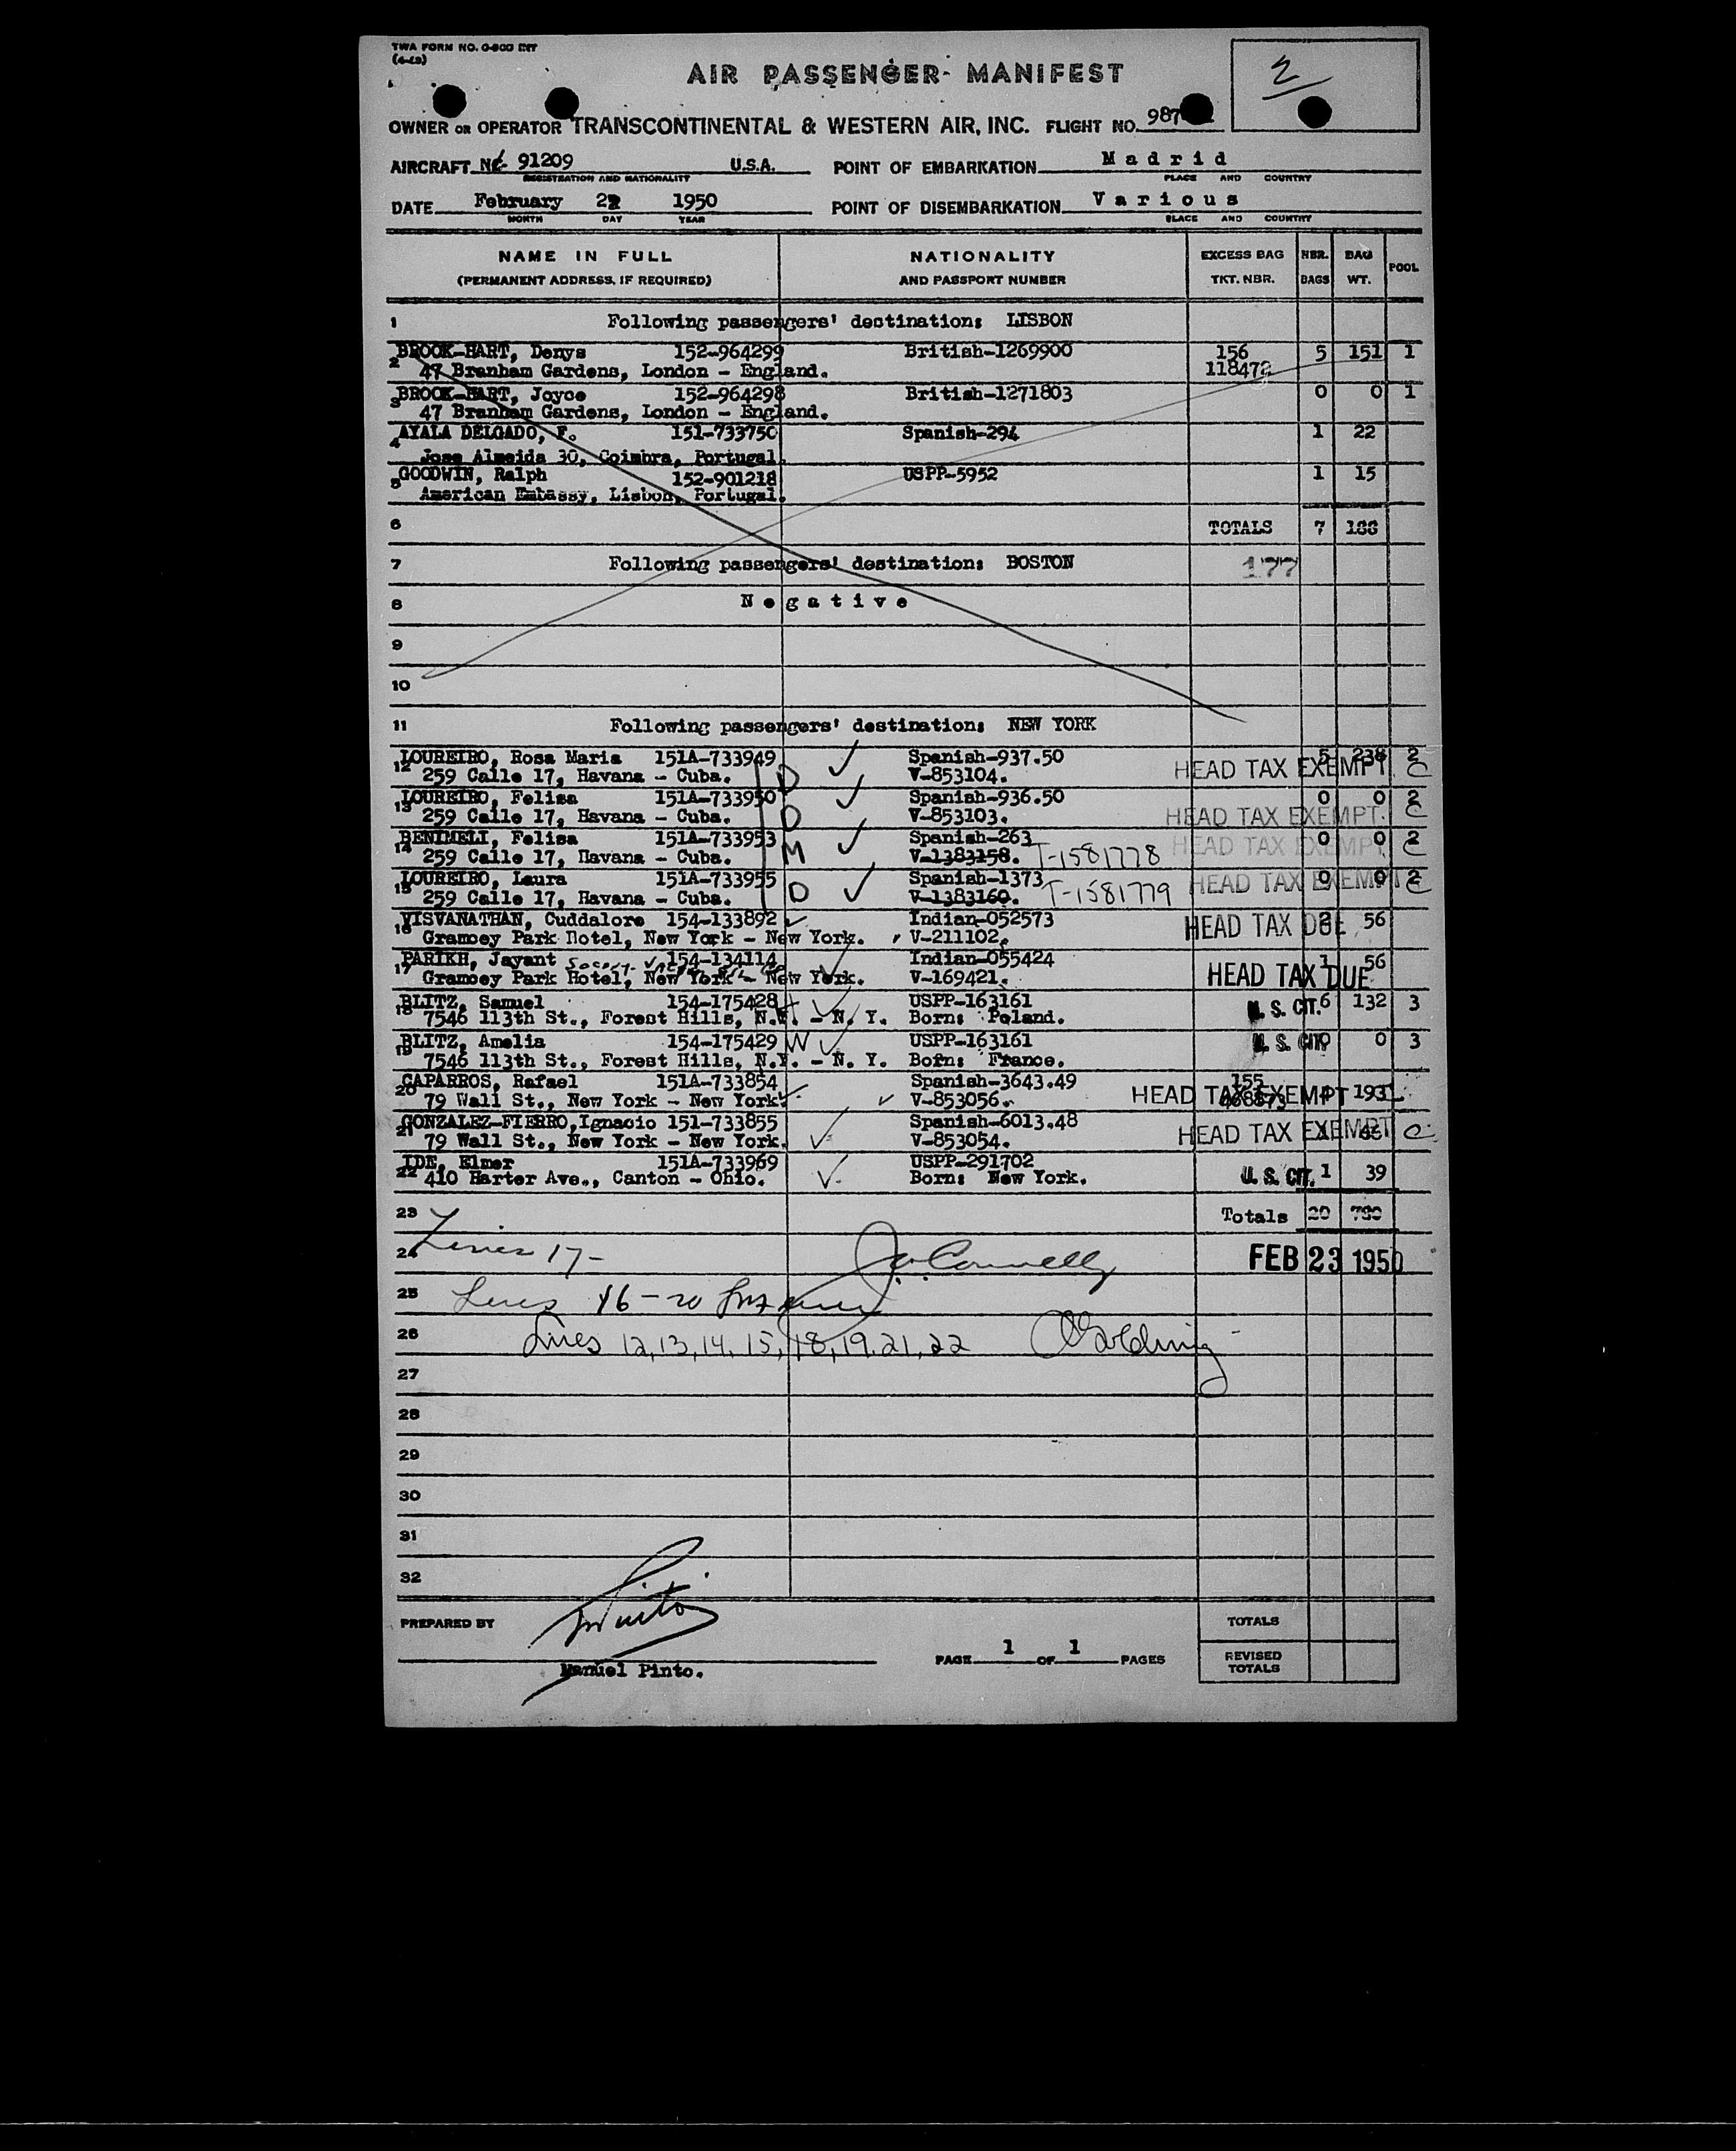 TWA FORM NO. O-800 INT
AIR PASSENGER MANIFEST
2
OWNER OR OPERATOR TRANSCONTINENTAL & WESTERN AIR, INC. FLIGHT NO. 987
AIRCRAFT 91209 U.S.A. POINT OF EMBARKATION Madrid
REGISTRATION AND NATIONALITY PLACE AND COUNTRY
DATE February 22 1950 POINT OF DISEMBARKATION Various
MONTH DAY YEAR PLACE AND COUNTRY
NAME IN FULL NATIONALITY EXCESS BAG NBR. BAG POOL
(PERMANENT ADDRESS, IF REQUIRED) AND PASSPORT NUMBER TKT. NBR. BAGS WT.
1 Following passengers' destination: LISBON
2 BROOK-HART, Denys 152-964299 British-1269900 156 5 151 1
47 Branham Gardens, London - England. 118472
3 BROOK-HART, Joyce 152-964298 British-1271803 0 0 1
47 Branham Gardens, London - England.
4 AYALA DELGADO, F. 151-733750 Spanish-294 1 22
Jose Almeida 30, Coimbra, Portugal.
5 GOODWIN, Ralph 152-901218 USPP-5952 1 15
American Embassy, Lisbon, Portugal.
6 TOTALS 7 188
7 Following passengers' destination: BOSTON 177
8 Negative
9
10
11 Following passengers' destination: NEW YORK
12 LOUREIRO, Rosa Maria 151A-733949 Spanish-937.50 5 238 2
259 Calle 17, Havana - Cuba. D V-853104. HEAD TAX EXEMPT C
13 LOUREIRO, Felisa 151A-733950 Spanish-936.50 0 0 2
259 Calle 17, Havana - Cuba. D V-853103. HEAD TAX EXEMPT. C
14 BENIMELI, Felisa 151A-733953 Spanish-263 0 0 2
259 Calle 17, Havana - Cuba. M V-1383158. T-1581778 HEAD TAX EXEMPT C
15 LOUREIRO, Laura 151A-733955 Spanish-1373 0 0 2
259 Calle 17, Havana - Cuba. D V-1383160. T-1581779 HEAD TAX EXEMPT C
16 VISVANATHAN, Cuddalore 154-133892 Indian-052573 HEAD TAX DUE 2 56
Gramcey Park Hotel, New York - New York. V-211102.
17 PARIKH, Jayant 154-134114 Indian-055424 1 56
Gramcey Park Hotel, New York - New York. V-169421. HEAD TAX DUE
18 BLITZ, Samuel 154-175428 USPP-163161 U. S. CIT. 6 132 3
7546 113th St., Forest Hills, N.Y. - N. Y. Born: Poland.
19 BLITZ, Amelia 154-175429 W USPP-163161 U. S. CIT. 0 0 3
7546 113th St., Forest Hills, N.Y. - N. Y. Born: France.
20 CAPARROS, Rafael 151A-733854 Spanish-3643.49 155
79 Wall St., New York - New York. V-853056. HEAD TAX EXEMPT 193
21 GONZALEZ-FIERRO, Ignacio 151-733855 Spanish-6013.48
79 Wall St., New York - New York. V-853054. HEAD TAX EXEMPT C
22 IDE, Elmer 151A-733969 USPP-291702 U. S. CIT. 1 39
410 Harter Ave., Canton - Ohio. Born: New York.
23 Totals 20 780
24 Lines 17- FEB 23 1950
25 Lines 16-20
26 Lines 12, 13, 14, 15, 18, 19, 21, 22
27
28
29
30
31
32
PREPARED BY TOTALS
PAGE 1 OF 1 PAGES REVISED TOTALS
Manuel Pinto.